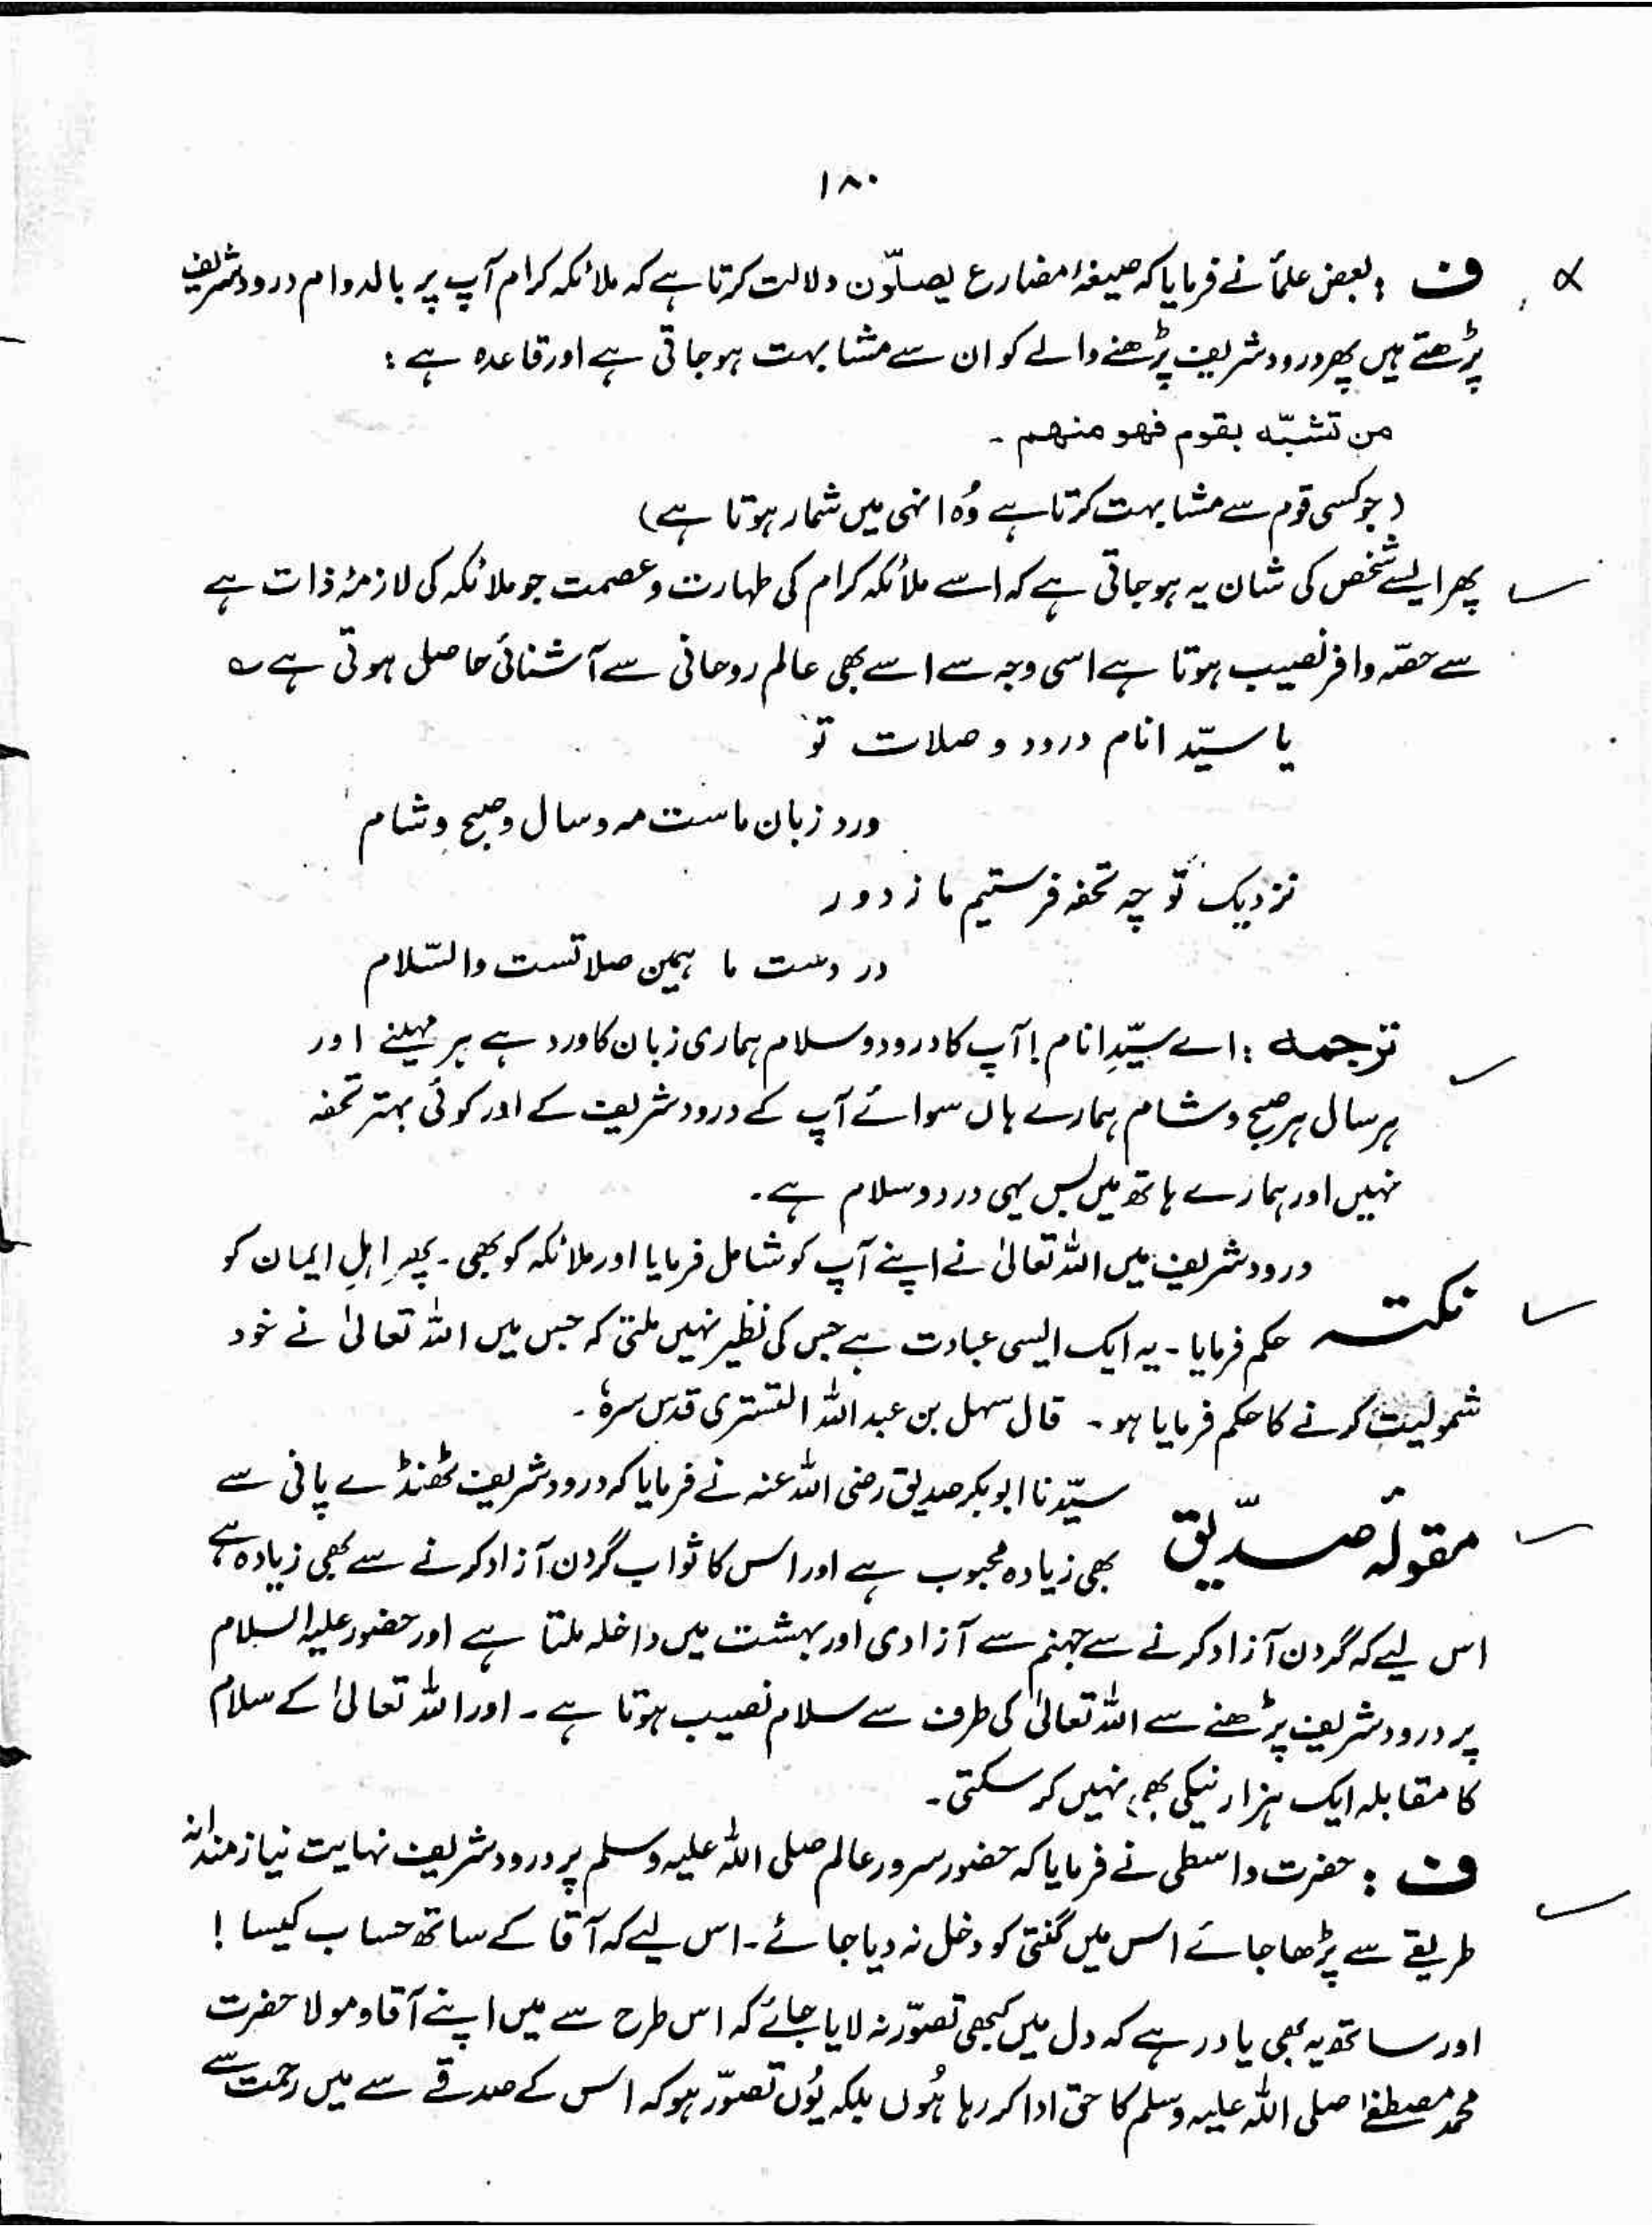 ۱۸۰
ف : بعض علمأ نے فرمایا کہ صیغۂ مضارع یصلّون دلالت کرتا ہے کہ ملائکہ کرام آپ پر بالدوام درود شریف
پڑھتے ہیں پھر درود شریف پڑھنے والے کو ان سے مشابہت ہو جاتی ہے اور قاعدہ ہے :
من تشبّہ بقوم فھو منھم ۔
( جو کسی قوم سے مشابہت کرتا ہے وُہ انہی میں شمار ہوتا ہے )
پھر ایسے شخص کی شان یہ ہو جاتی ہے کہ اسے ملائکہ کرام کی طہارت و عصمت جو ملائکہ کی لازمۂ ذات ہے
سے حصّہ وافر نصیب ہوتا ہے اسی وجہ سے اسے بھی عالم روحانی سے آشنائی حاصل ہوتی ہے ؎
یا سیّد انام درود و صلات تو
ورد زبان ماست مہ و سال و صبح و شام
نزدیک تو چہ تحفہ فرستیم ما ز دور
در دست ما ہمین صلاتست والسّلام
ترجمہ : اے سیّدِ انام ! آپ کا درود و سلام ہماری زبان کا ورد ہے ہر مہینے اور
ہر سال ہر صبح و شام ہمارے ہاں سوائے آپ کے درود شریف کے اور کوئی بہتر تحفہ
نہیں اور ہمارے ہاتھ میں بس یہی درود و سلام ہے ۔
درود شریف میں اللہ تعالیٰ نے اپنے آپ کو شامل فرمایا اور ملائکہ کو بھی ۔ پھر اہلِ ایمان کو
نکتہ حکم فرمایا ۔ یہ ایک ایسی عبادت ہے جس کی نظیر نہیں ملتی کہ جس میں اللہ تعالیٰ نے خود
شمولیت کرنے کا حکم فرمایا ہو ۔ قال سہل بن عبد اللہ التستری قدس سرہٗ ۔
سیّدنا ابوبکر صدیق رضی اللہ عنہ نے فرمایا کہ درود شریف ٹھنڈے پانی سے
مقولۂ صدّیق بھی زیادہ محبوب ہے اور اس کا ثواب گردن آزاد کرنے سے بھی زیادہ ہے
اس لیے کہ گردن آزاد کرنے سے جہنم سے آزادی اور بہشت میں داخلہ ملتا ہے اور حضور علیہ السلام
پر درود شریف پڑھنے سے اللہ تعالیٰ کی طرف سے سلام نصیب ہوتا ہے ۔ اور اللہ تعالیٰ کے سلام
کا مقابلہ ایک ہزار نیکی بھی نہیں کر سکتی ۔
ف : حضرت واسطی نے فرمایا کہ حضور سرور عالم صلی اللہ علیہ وسلم پر درود شریف نہایت نیازمندانہ
طریقے سے پڑھا جائے اس میں گنتی کو دخل نہ دیا جائے ۔ اس لیے کہ آقا کے ساتھ حساب کیسا !
اور ساتھ یہ بھی یاد رہے کہ دل میں کبھی تصوّر نہ لایا جائے کہ اس طرح سے میں اپنے آقا و مولا حضرت
محمد مصطفےٰ صلی اللہ علیہ وسلم کا حق ادا کر رہا ہُوں بلکہ یُوں تصوّر ہو کہ اس کے صدقے سے میں رحمت سے